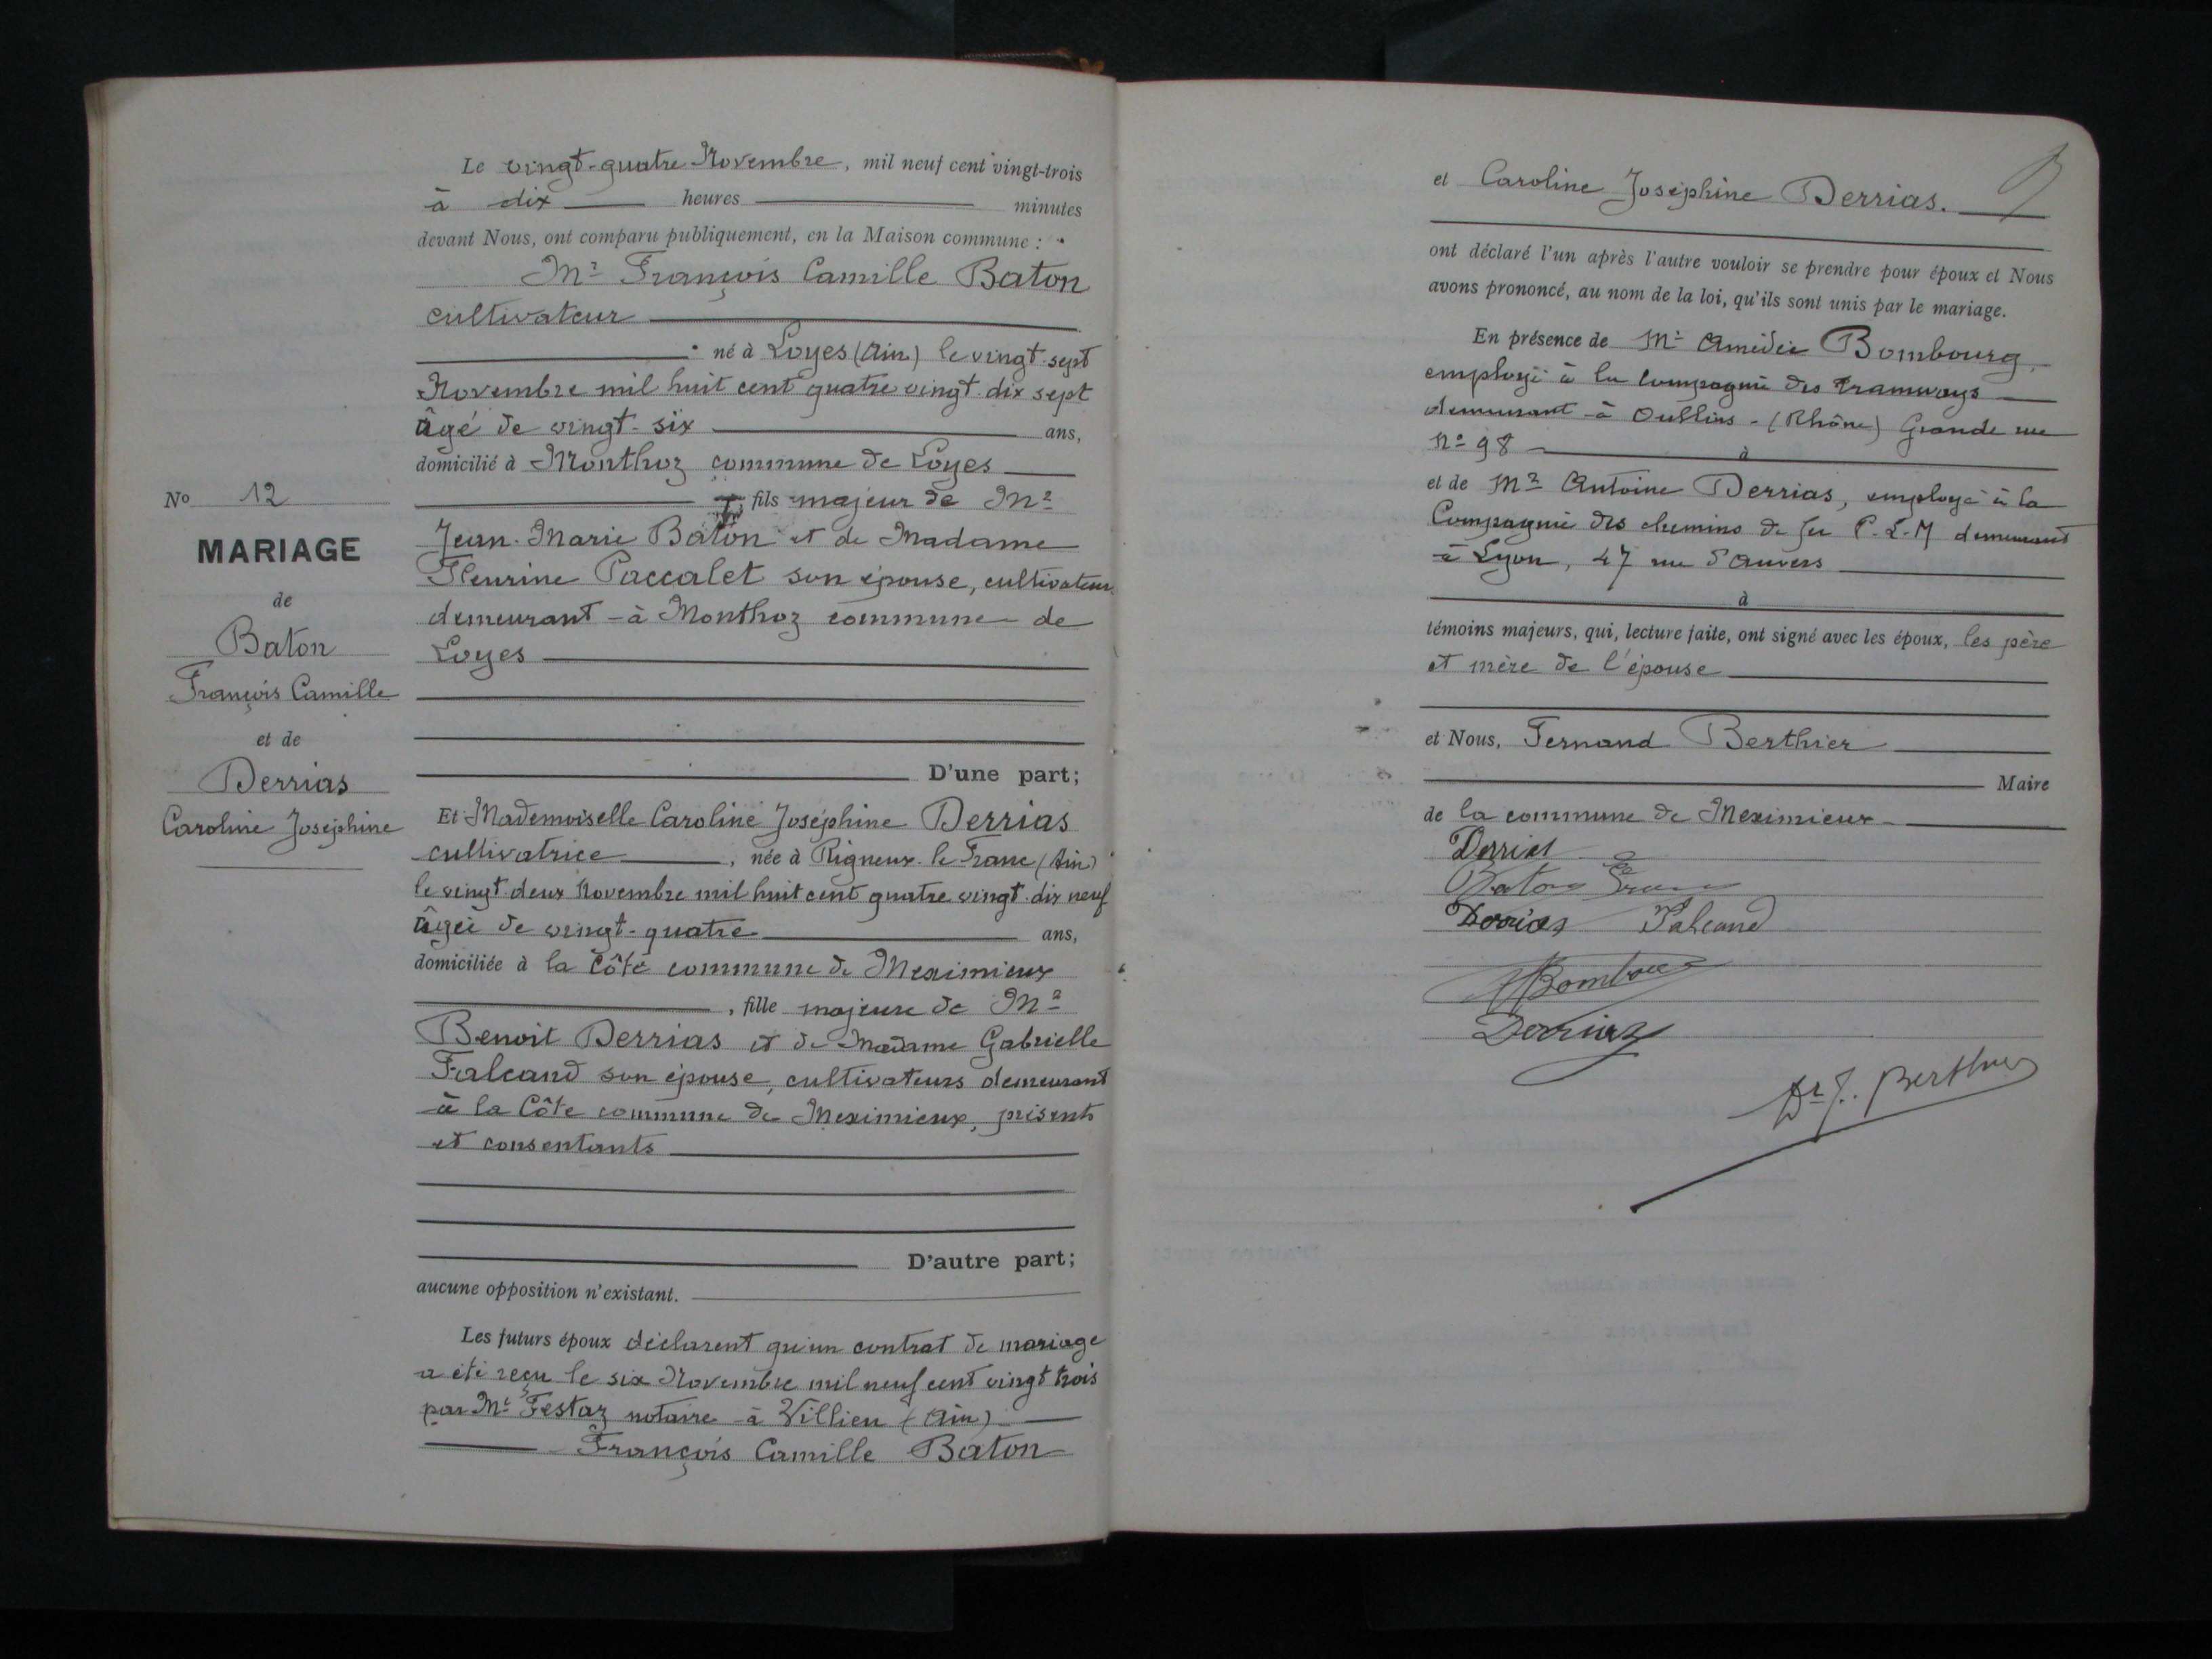 Le vingt-quatre Novembre, mil neuf cent vingt-trois
à dix heures minutes
devant Nous, ont comparu publiquement, en la Maison commune :
Mr François Camille Baton
cultivateur
né à Loyes (Ain) le vingt-sept
Novembre mil huit cent quatre vingt-dix sept
âgé de vingt-six ans,
domicilié à Monthoz commune de Loyes
, fils majeur de Mr
Jean-Marie Baton et de Madame
Fleurine Paccalet son épouse, cultivateurs
demeurant à Monthoz commune de
Loyes
D'une part;
Et Mademoiselle Caroline Joséphine Derrias
cultivatrice, née à Rigneux-le-Franc (Ain)
le vingt-deux Novembre mil huit cent quatre vingt-dix neuf
âgée de vingt-quatre ans,
domiciliée à la Côte commune de Meximieux
, fille majeure de Mr
Benoit Derrias et de Madame Gabrielle
Falcand son épouse, cultivateurs demeurant
à la Côte commune de Meximieux, présents
et consentants
D'autre part;
aucune opposition n'existant.
Les futurs époux déclarent qu'un contrat de mariage
a été reçu le six Novembre mil neuf cent vingt trois
par Me Festaz notaire à Villieu (Ain)
François Camille Baton
No 12
MARIAGE
de
Baton
François Camille
et de
Derrias
Caroline Joséphine
et Caroline Joséphine Derrias.
ont déclaré l'un après l'autre vouloir se prendre pour époux et Nous
avons prononcé, au nom de la loi, qu'ils sont unis par le mariage.
En présence de Mr Amédée Bombourg,
employé à la Compagnie des tramways
demeurant à Oullins - (Rhône) Grande rue
No 98 à
et de Mr Antoine Derrias, employé à la
Compagnie des chemins de fer P.L.M demeurant
à Lyon, 47 rue d'Anvers
à
témoins majeurs, qui, lecture faite, ont signé avec les époux, les père
et mère de l'épouse
et Nous, Fernand Berthier
Maire
de la commune de Meximieux
Derrias
Baton
Derrias Falcand
Derrias
Dr F. Berthier